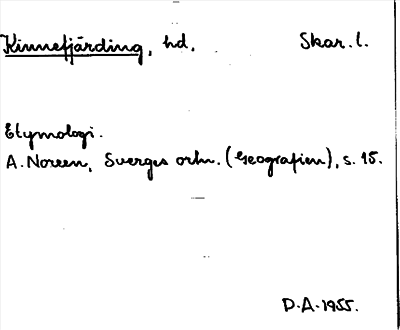 Kinnefjärding, hd, Skar. l.
Etymologi.
A. Noreen, Sveriges ortn. (Geografien), s. 15.
D.A. 1955.